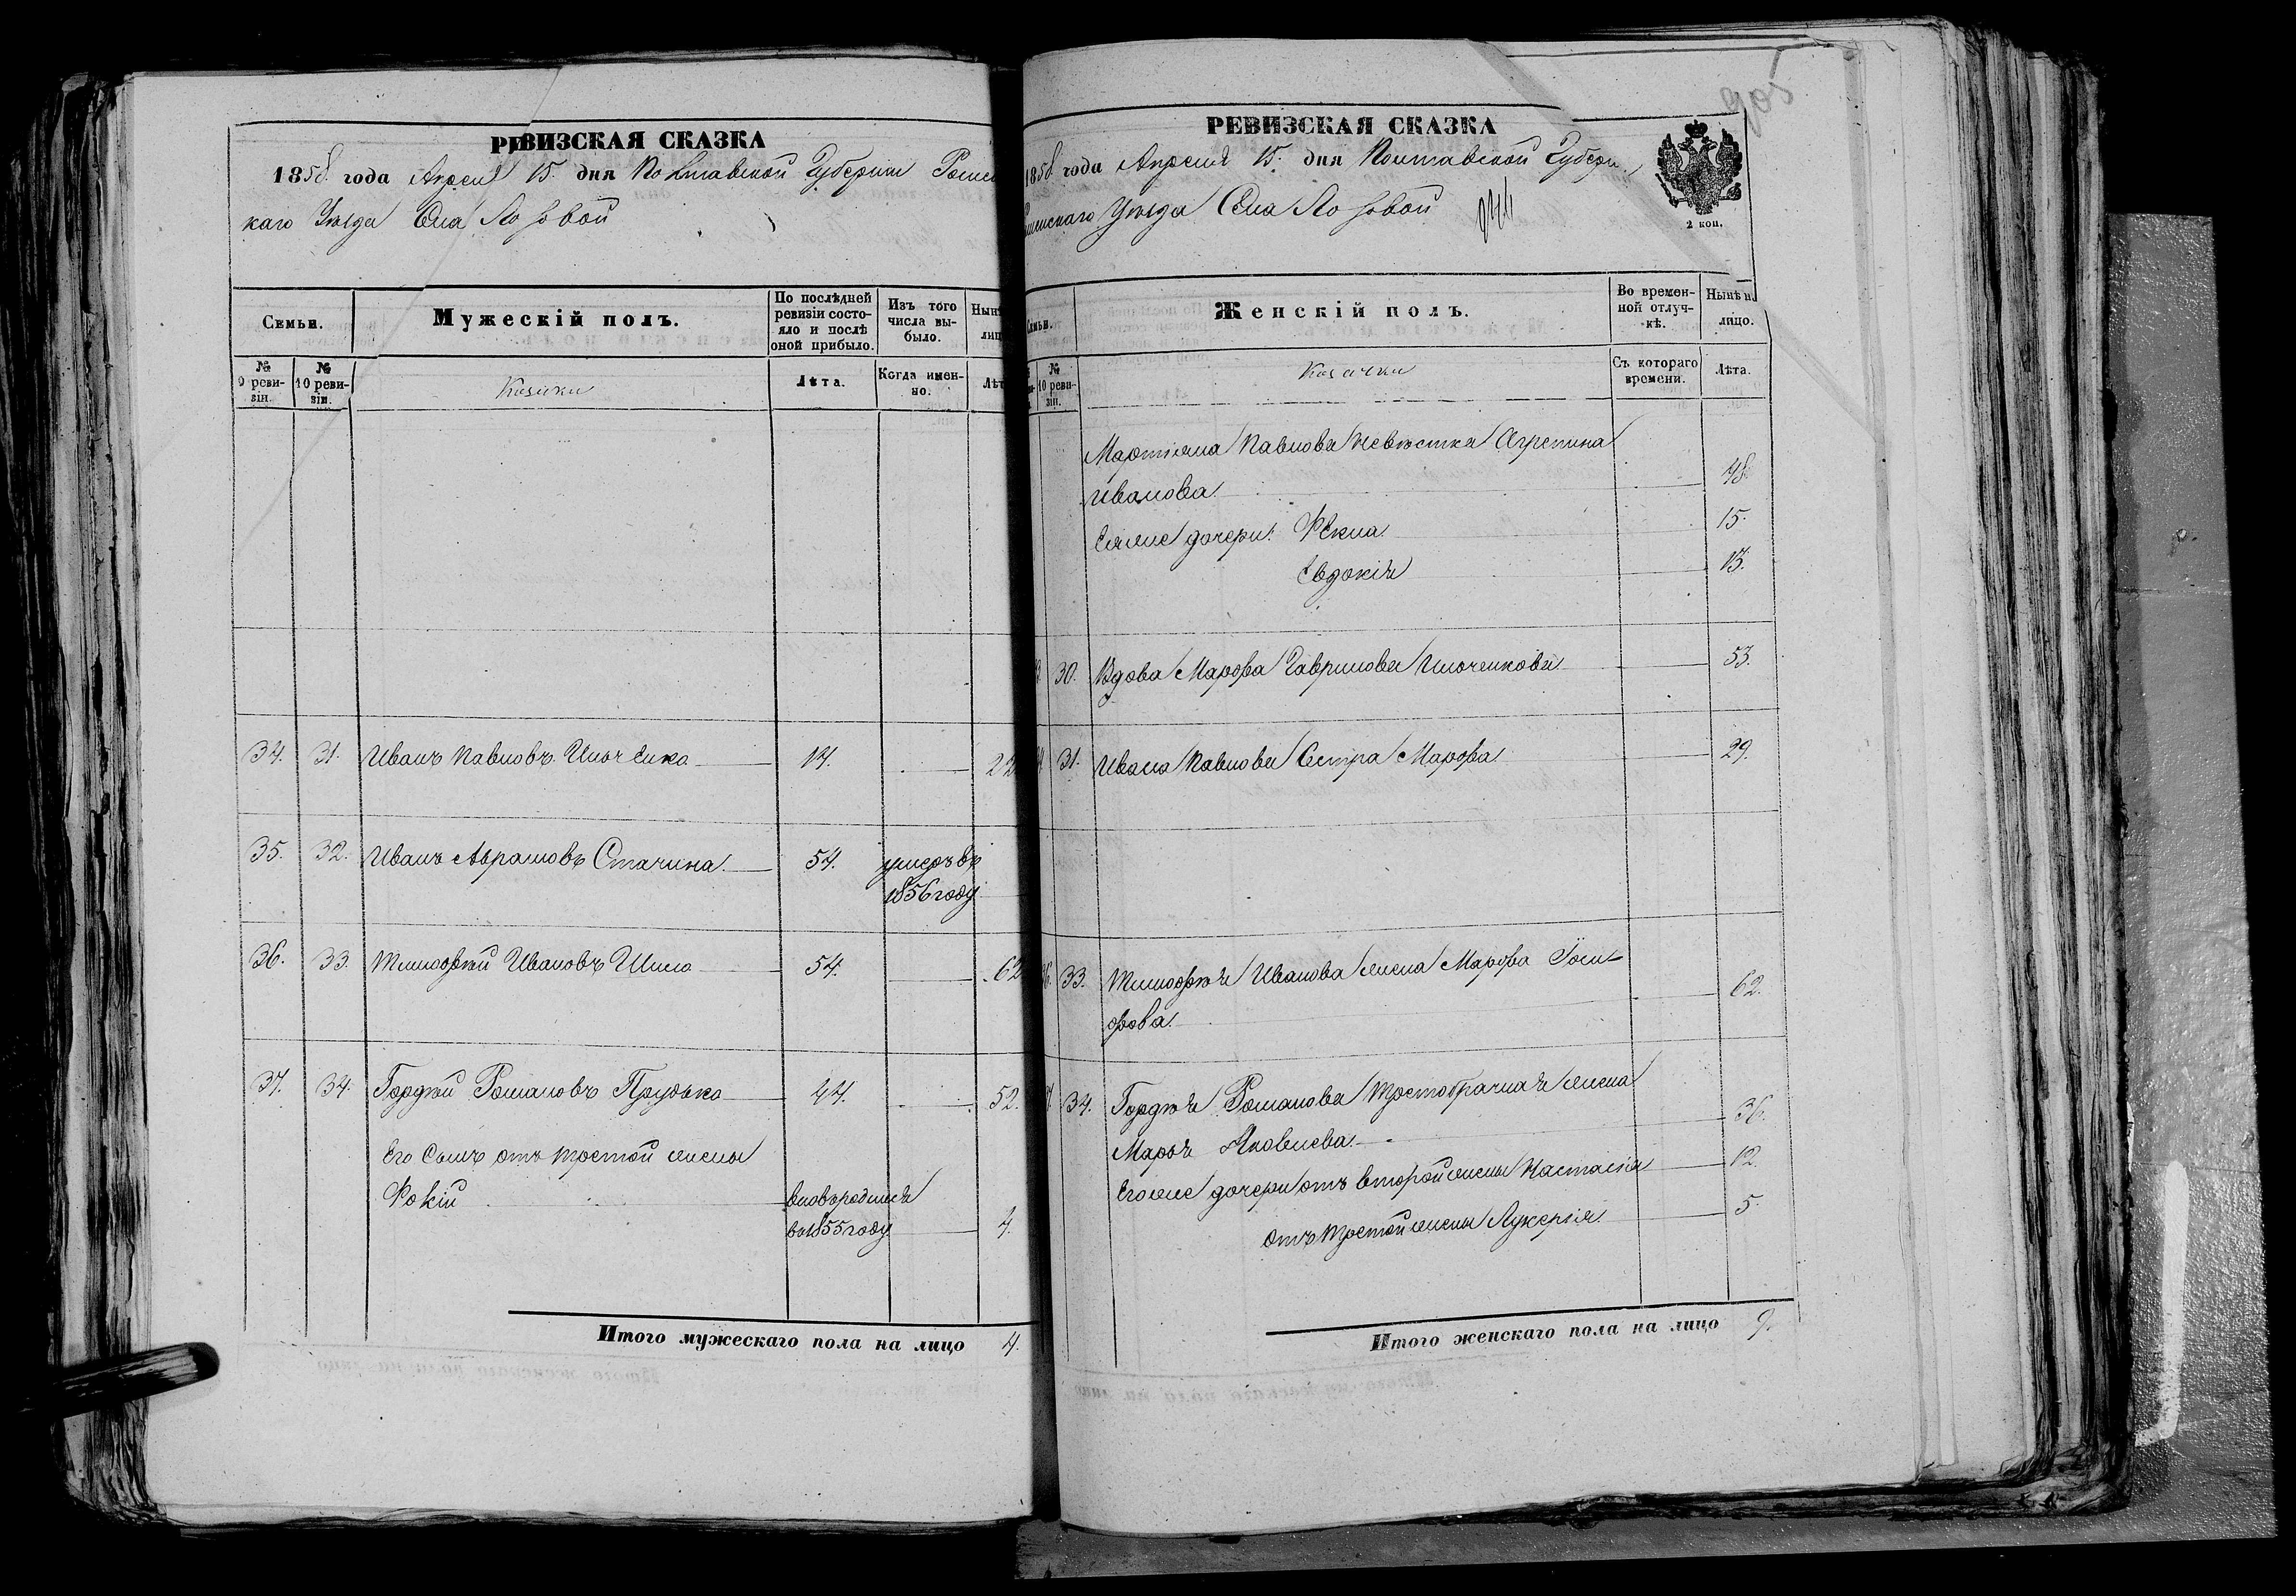 РЕВИЗСКАЯ СКАЗКА
1858 года Апреля 15 дня Полтавской Губернiи Ромен
каго Уѣзда Села Ло зовой
Семьи.
Мужескiй полъ.
По послѣдней ревизiи состояло и послѣ оной прибыло.
Изъ того числа выбыло.
Нынѣ
лиц
№ 9 ревизiи.
№ 10 ревизiи.
Казаки
Лѣта.
Когда именно.
Лѣт
34. 31. Иванъ Павловъ Ильченко 14. 22
35. 32. Иванъ Аврамовъ Стачина. 54. умеръ въ
1856 году
36. 33. Тимофѣй Ивановъ Шило 54. 62
37. 34. Гордѣй Романовъ Прудько 44. 52.
Его Сынъ отъ третой жены
Фокiй вновьродился
въ 1855 году 4.
Итого мужескаго пола на лицо 4.
905
РЕВИЗСКАЯ СКАЗКА
1858 года Апреля 15. дня Полтавской Губерн
менскаго Уѣзда Села Ло зовой
2 коп.
Семьи.
Женскiй полъ.
Во временной отлучкѣ.
Нынѣ н.
лицо.
№ 10 ревизiи.
Казачки
Съ котораго времени.
Лѣта.
Мартiяна Павлова невѣстка Агрепина
Иванова. 48.
Еяже дочери: Фекла 15.
Евдокiя 13.
30. Вдова Марфа Гаврилова Ильченкова 53.
31. Ивана Павлова Сестра Марфа 29.
33. Тимофѣя Иванова жена Марфа Iоси-
фова. 62.
34. Гордѣя Романова третобрачная жена
Марья Яковлева. 36.
Егоже дочери отъ второй жены Настасiя 12.
отъ третой жены Лукерiя 5.
Итого женскаго пола на лицо 9.